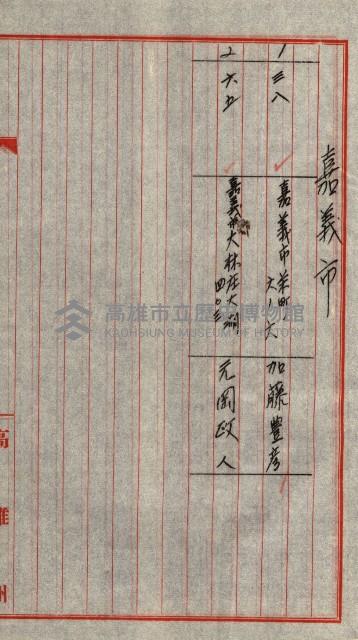 嘉義市
1
三八
嘉義市栄町
六ノ六
加藤豊彦
2
六五
嘉義郡大林庄大湖
四〇三
元岡政人
高雄州
高雄市立歷史博物館
KAOHSIUNG MUSEUM OF HISTORY